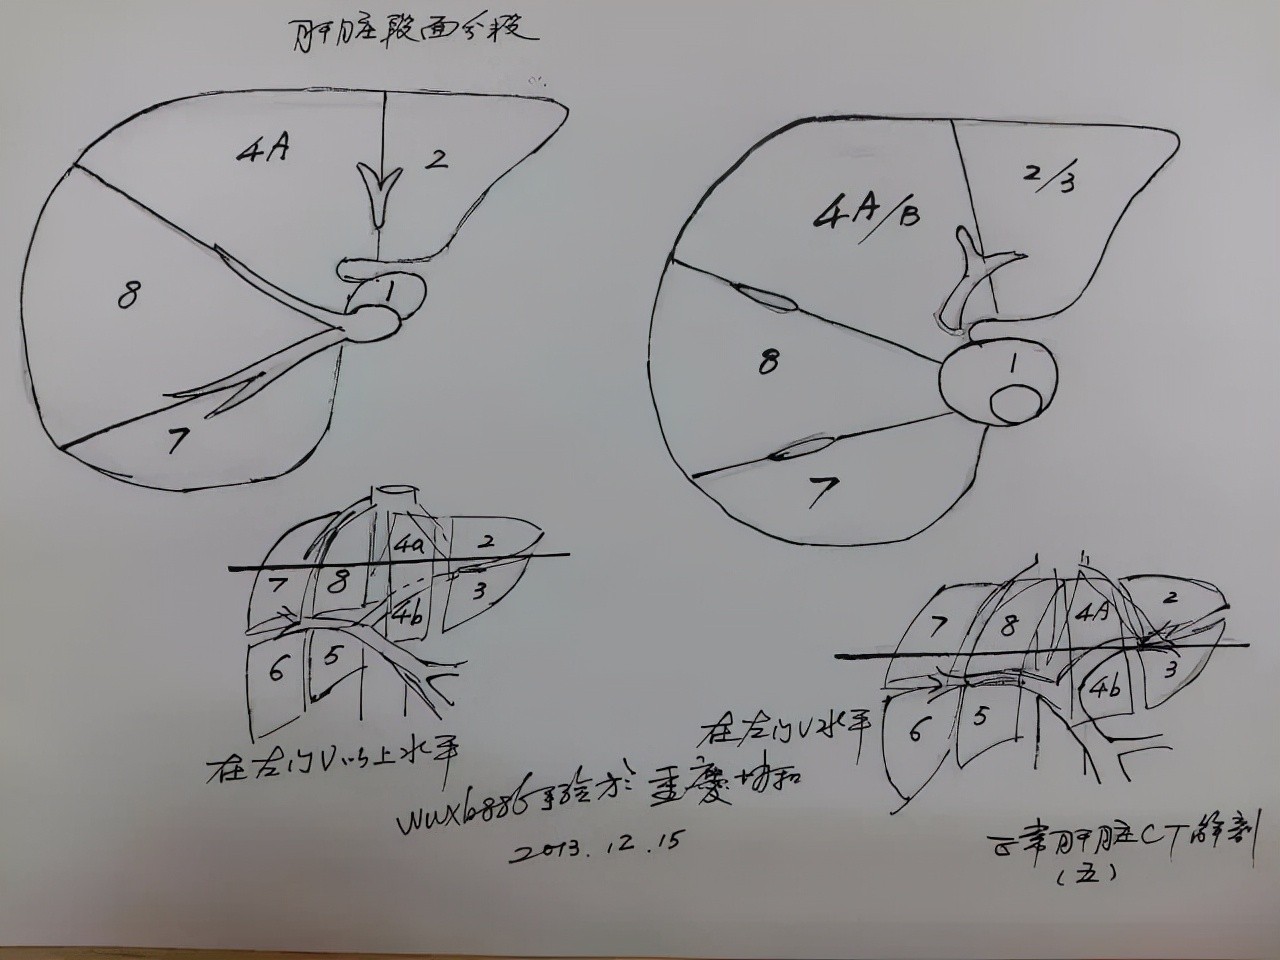 肝脏段面分段
4A
2
8
1
7
4A/B
2/3
8
1
7
4a
2
7
8
3
4b
6
5
在左门V以上水平
7
8
4A
2
3
4b
6
5
在左门V水平
wwxb886手绘於重慶协和
2013.12.15
正常肝脏CT解剖
(五)